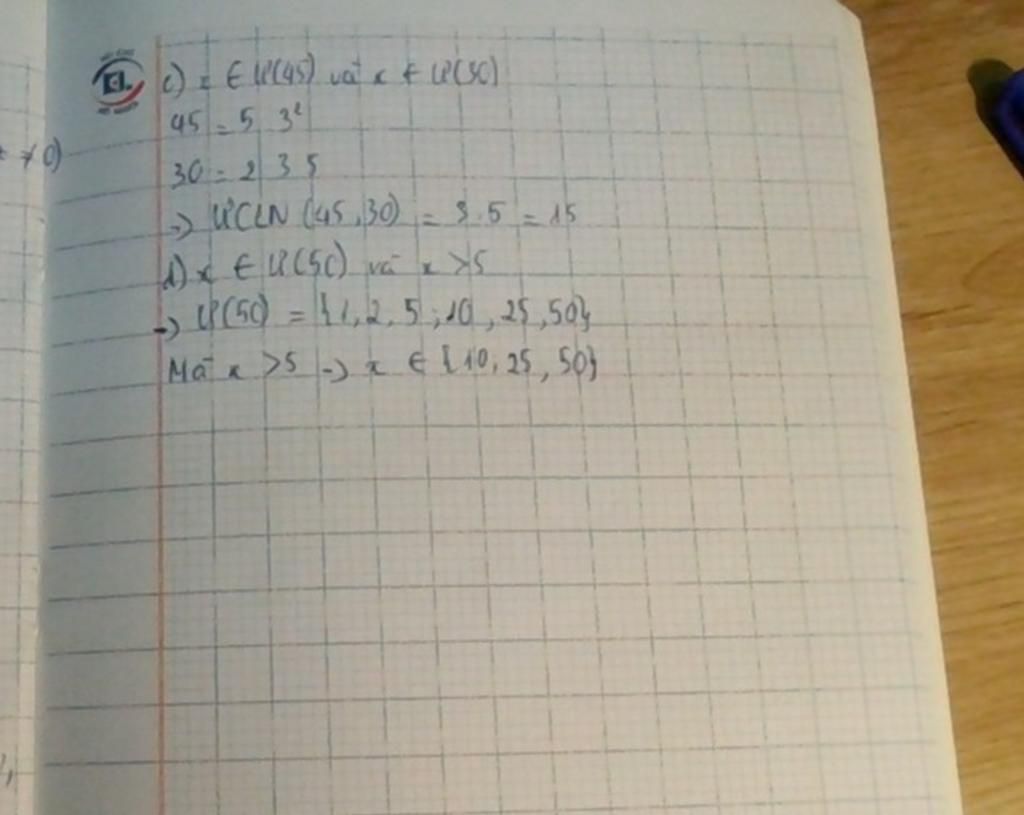 c) x ∈ Ư(45) và x ∈ Ư(30)
45 = 5 3²
30 = 2 3 5
→ ƯCLN (45,30) = 3.5 = 15
d) x ∈ Ư(50) và x >5
→ Ư(50) = {1, 2, 5; 10, 25, 50}
Mà x >5 → x ∈ {10, 25, 50}
≠ 0)